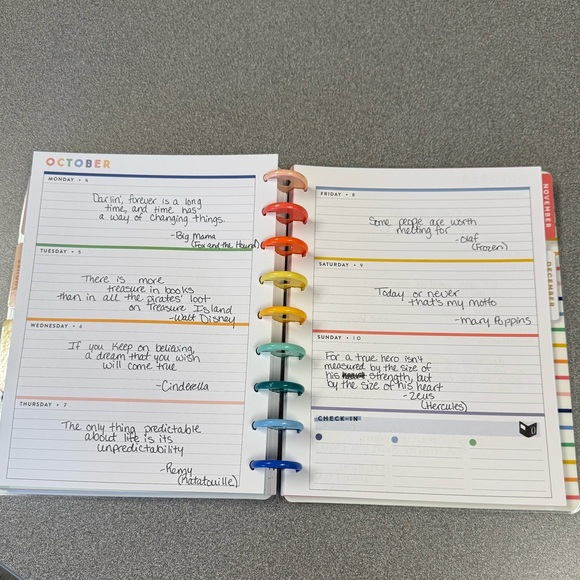 OCTOBER
MONDAY • 4
Darlin', forever is a long
time, and time has
a way of changing things.
-Big Mama
(Fox and the Hound)
TUESDAY • 5
There is more
treasure in books
than in all the pirates' loot
on Treasure Island
-Walt Disney
WEDNESDAY • 6
If you keep on believing,
a dream that you wish
will come true
-Cinderella
THURSDAY • 7
The only thing predictable
about life is its
unpredictability
-Remy
(Ratatouille)
FRIDAY • 8
Some people are worth
melting for
-Olaf
(Frozen)
SATURDAY • 9
Today or never
that's my motto
-Mary Poppins
SUNDAY • 10
For a true hero isn't
measured by the size of
his heart strength, but
by the size of his heart
-Zeus
(Hercules)
CHECK-IN
NOVEMBER
DECEMBER